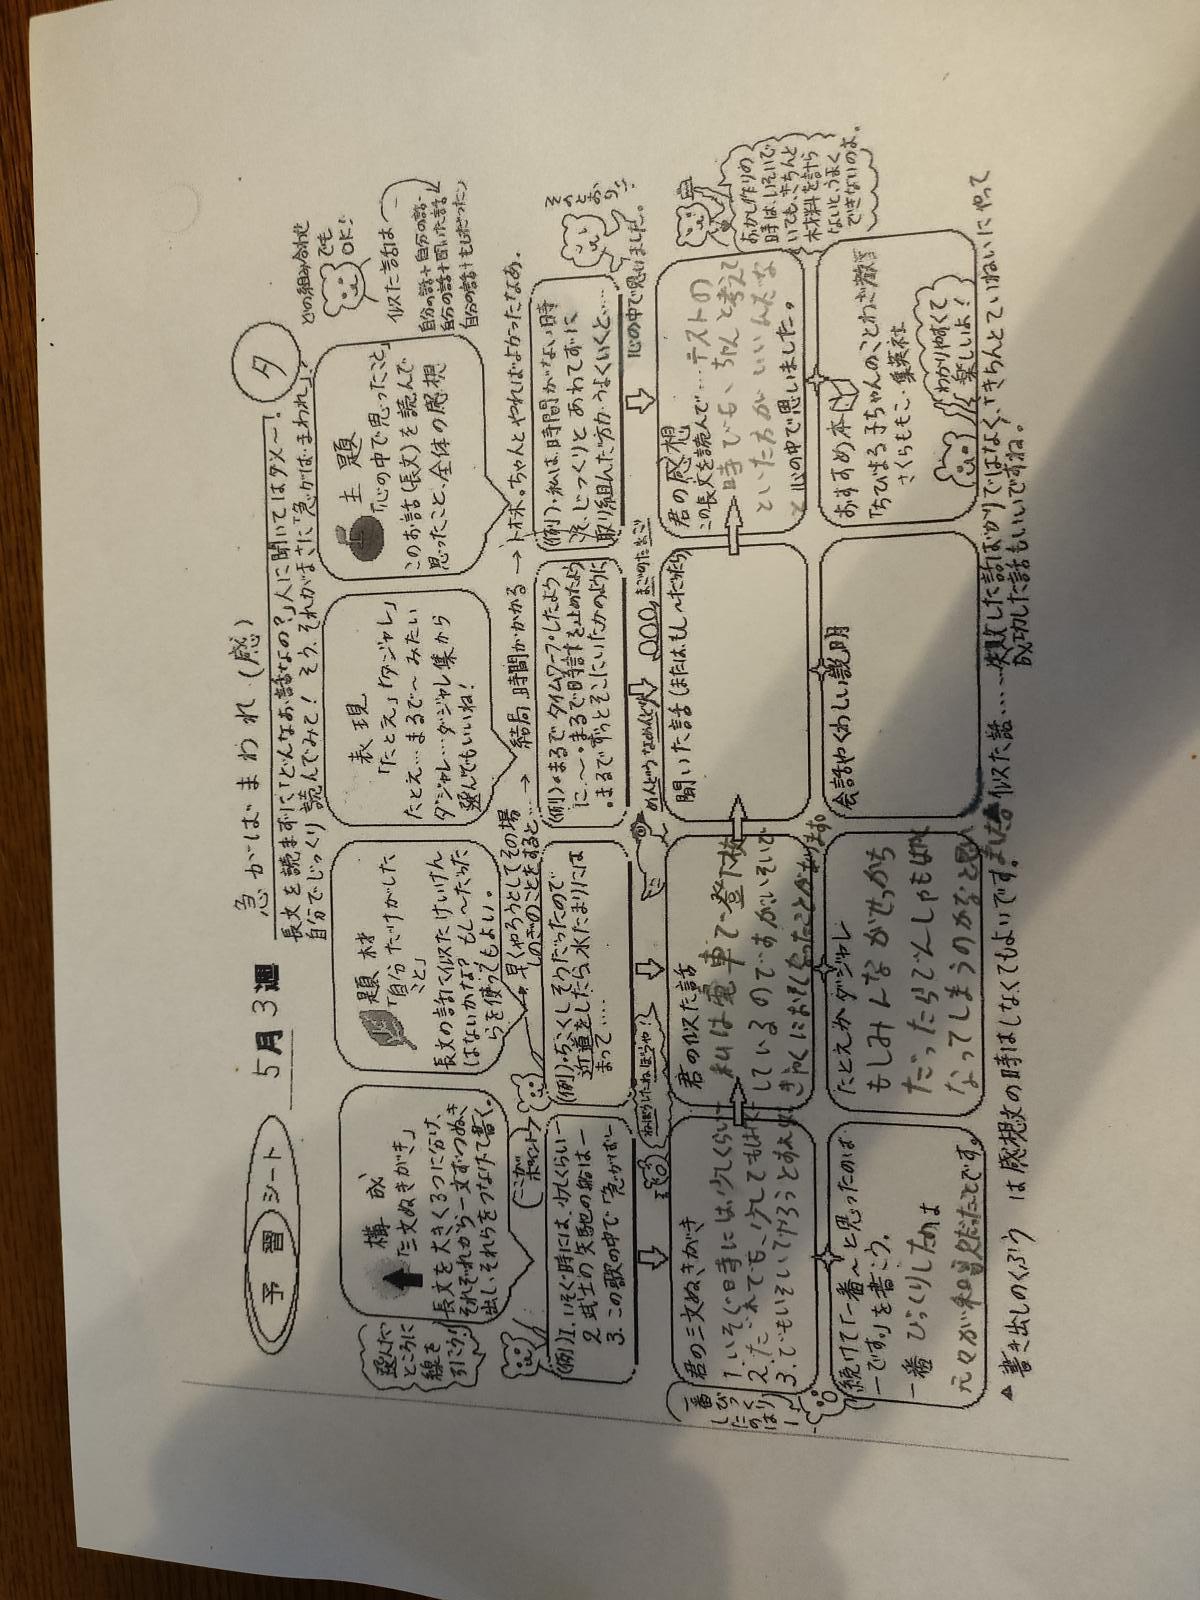 予習シート 5月3週 急がばまわれ(感)
タ
長文を読まずに「どんなお話なの?」人に聞いてはダメ〜!
自分でじっくり読んでみて!そう、それがまさに「急がばまわれ」?
選んだ
ところに
線を
引こう!
構成
「三文ぬきがき」
長文を大きく3つに分け、
それぞれから一文ずつぬき
出し、それらをつなげて書く。
ここが
ポイント
題材
「自分だけがした
こと」
長文の話に似たけいけん
はないかな?もし〜だった
らを使ってもよい。
表現
「たとえ」「ダジャレ」
たとえ…まるで〜みたい
ダジャレ…ダジャレ集から
選んでもいいね!
主題
「心の中で思ったこと」
このお話(長文)を読んで
思ったこと・全体の感想
どの組み合わせ
でも
OK!
似た話は
自分の話+自分の話
自分の話+聞いた話
自分の話+もしだったら
早くやろうとしてその場
しのぎのことをすると…→結局、時間がかかる→トホホ。ちゃんとやればよかったなあ。
(例)1. いそぐ時には、少しくらい―
2. 武士の矢馳の船は―
3. この歌の中で「急がば―
(例)・ちこくしそうだったので
近道をしたら、水たまりには
まって……
(例)・まるでタイムワープしたよう
に〜・まるで時計を止めたよう
・まるでずっとそこにいたかのように
(例)・私は、時間がない時
ほど、じっくりとあわてずに
取り組んだ方がうまくいくと……
心の中で思いました。
そのとおり!!
君の三文ぬきがき
1. いそぐ時には少しくらい
2. だれでも、少しでもはやく
3. でもいそいでやろうとすればするほど
一番
びっくり
したのは
君の似た話
私は電車で登下校
しているのですがいそいで
聞いた話(または、もし〜だったら)
君の感想
この長文を読んで…テストの
時でも、ちゃんと考えて
といた方がいいんだな
と心の中で思いました。
おかし作りの
時は、いそいで
いても、きちんと
材料を計ら
ないと、うまく
できないのよ。
続けて「一番〜と思ったのは
―です。」を書こう。
一番びっくりしたのは
たとえかダジャレ
もしみんながせっかち
だったらでんしゃもはやく
なってしまうのかなと思い
ました。
会話やくわしい説明
おすすめ本
「ちびまる子ちゃんのことわざ教室」
さくらももこ・集英社
わかりやすくて
楽しいよ!
▲書き出しのくふうは感想文の時はしなくてもよいです。▲似た話……失敗した話ばかりではなく、「きちんとていねいにやって
成功した話もいいですね。